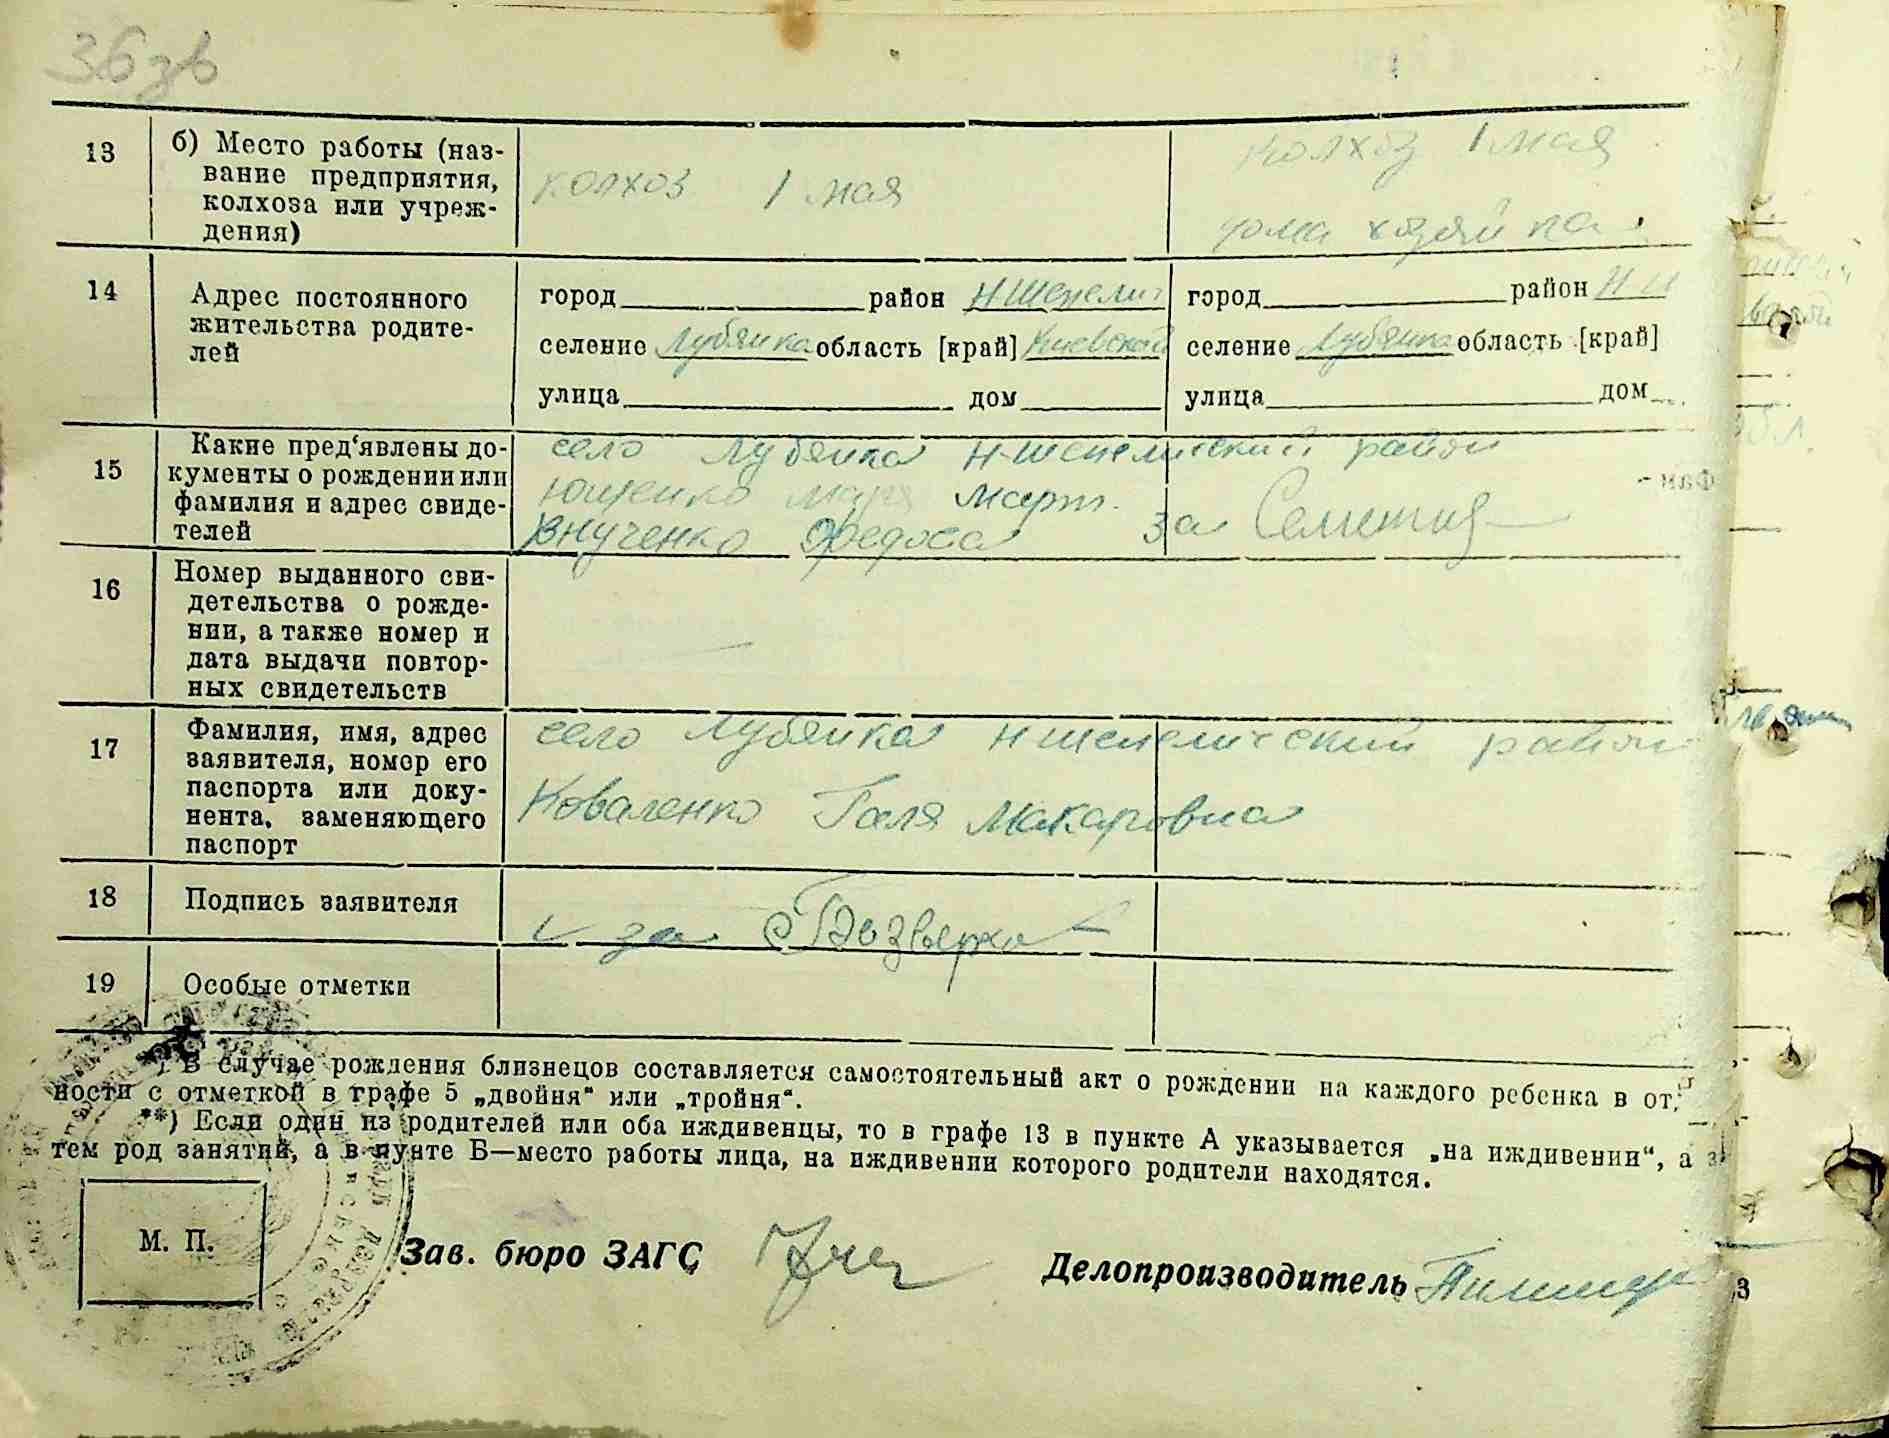 36 зв
13
б) Место работы (наз-
вание предприятия,
колхоза или учреж-
дения)
колхоз 1 мая
колхоз 1 мая
14
Адрес постоянного
жительства родите-
лей
город район Н Шепелич
селение Лубянка область [край] Киевская
улица дом
город район Н Ш
селение Лубянка область [край]
улица дом
15
Какие пред'явлены до-
кументы о рождении или
фамилия и адрес свиде-
телей
село Лубянка Н-шепелический район
Ющенко март.
Внученко Федоса за
16
Номер выданного сви-
детельства о рожде-
нии, а также номер и
дата выдачи повтор-
ных свидетельств
17
Фамилия, имя, адрес
заявителя, номер его
паспорта или доку-
нента, заменяющего
паспорт
село Лубянка Н шепелический район
Коваленко Галя Макаровна
18
Подпись заявителя
за
19
Особые отметки
) В случае рождения близнецов составляется самостоятельный акт о рождении на каждого ребенка в от
ности с отметкой в графе 5 „двойня“ или „тройня“.
**) Если один из родителей или оба иждивенцы, то в графе 13 в пункте А указывается „на иждивении“, а з
тем род занятий, а в пункте Б—место работы лица, на иждивении которого родители находятся.
М. П.
Зав. бюро ЗАГС
Делопроизводитель